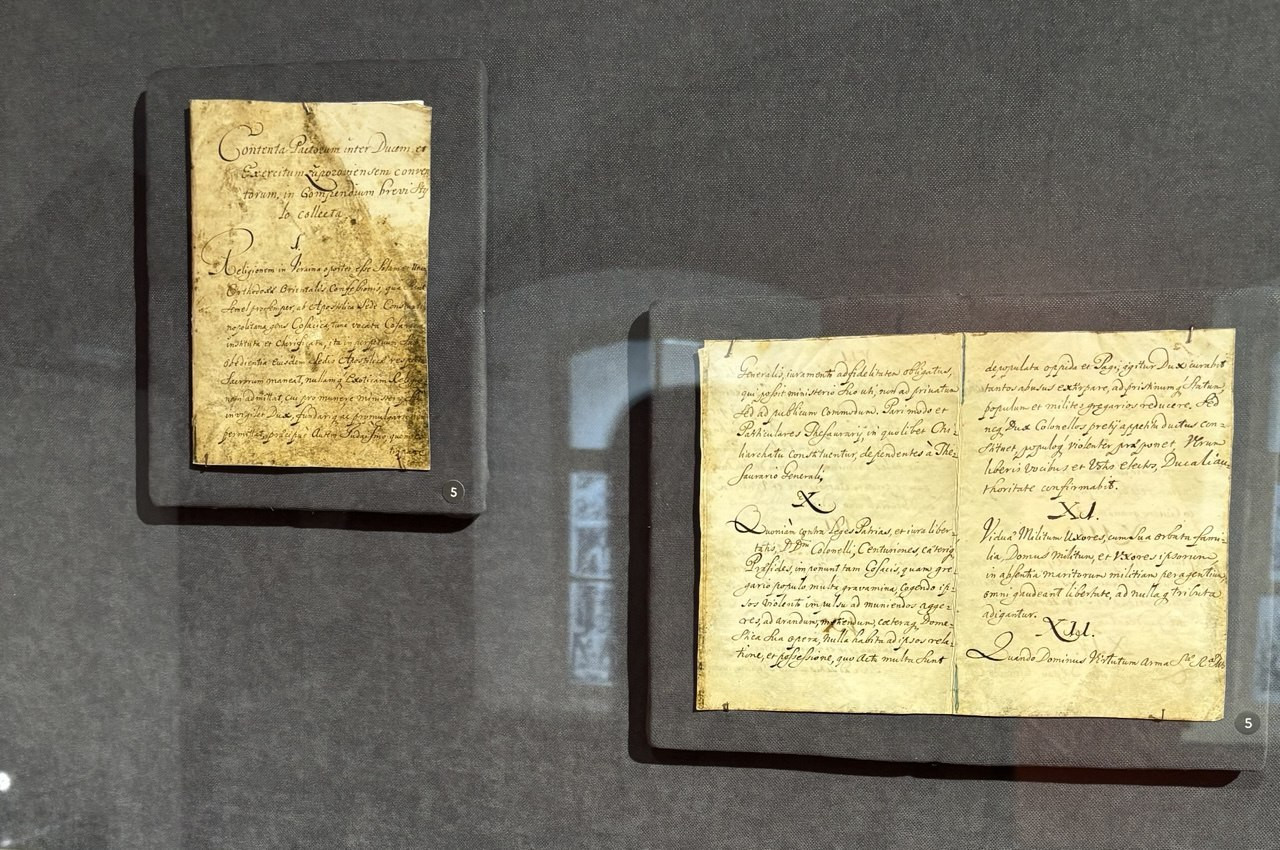 Contenta Pactorum inter Ducem et
Exercitum Zaporoviensem conven
torum, in Compendium brevi sty
lo collecta.
I.
Religionem in Ucraina oportet esse Solam
Orthodoxs Orientalis Confessionis, qua
Apostolica Sedi
instituta et
obedientia eiusdem Sedis Apostolica
maneat, nullamq Exoticam
non admittat, cui pro munere
invigilet Dux,
5
Generalis, iuramento ad fidelitatem obligatus,
qui possit ministerio suo uti, non ad privatum
sed ad publicum Commodum. Pari modo et
Particulares Thesaurarij, in quolibet Chi-
liarchatu constituentur, dependentes à The-
saurario Generali,
X.
Quoniam contra Leges Patrias, et iura liber-
tatis, Colonelli, Centuriones, caeteriq
Praesides, imponunt tam Cosacis, quam gre-
gario populo multa gravamina, Cogendo ip-
sos violento impulsu ad muniendos agge-
res, ad arandum, metendum, caeteraq Dome-
stica sua opera, nulla habita ad ipsos rela-
tione, et possessione, quo actu multa sunt
depopulata opida et Pagi, igitur Dux curabit
tantos abusus extirpare, ad pristinum q Statum,
populum et milites gregarios reducere. Sed
neq Dux Colonellos pretij appetitu ductus con-
stituet populoq violenter praeponet. Verum
liberis vocibus et Voto electos, Ducali au-
thoritate confirmabit.
XI.
Viduae Militum Uxores, cum sua orbata fami-
lia, Domus Militum, et Uxores ipsorum
in absentia maritorum militiam peragentium,
omni gaudeant libertate, ad nulla q tributa
adigantur.
XII.
Quando Dominus Virtutum Arma
5